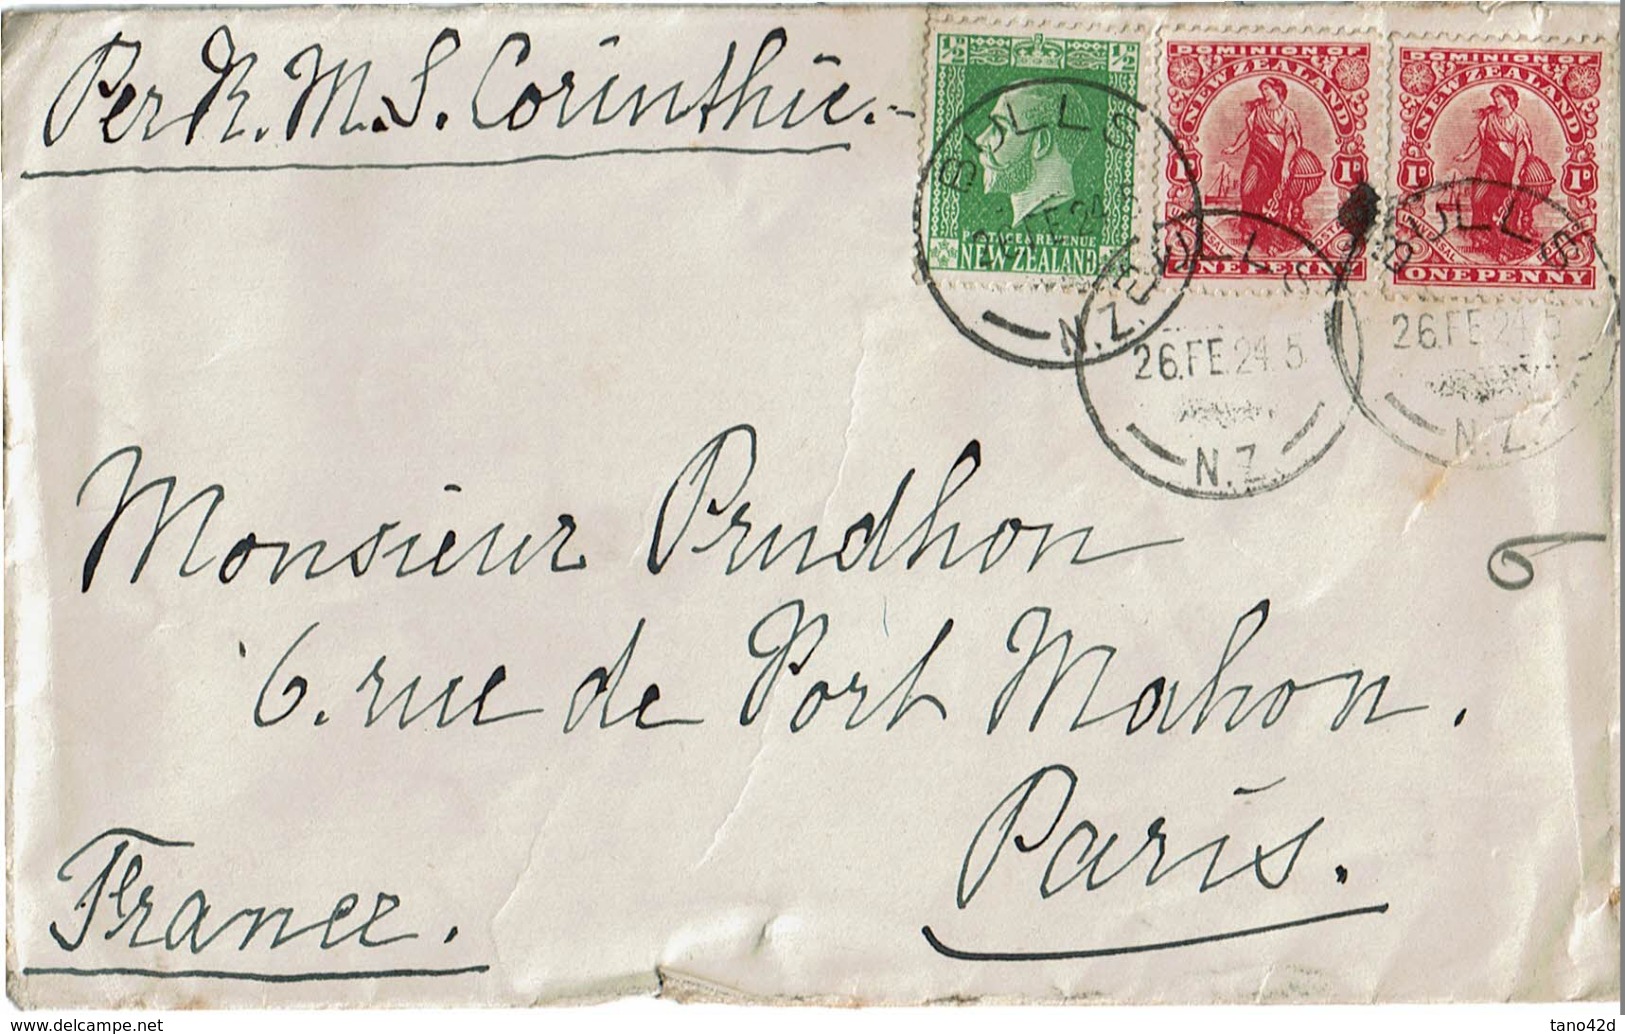 Per R.M.S. Corinthic.-
½D ½D
POSTAGE & REVENUE
NEW ZEALAND
DOMINION OF
NEW ZEALAND
1D 1D
UNIVERSAL POSTAGE
ONE PENNY
DOMINION OF
NEW ZEALAND
1D 1D
UNIVERSAL POSTAGE
ONE PENNY
BULLS
26 FE 24
N.Z.
BULLS
26.FE.24.5
N.Z.
BULLS
26.FE.24.5
N.Z.
Monsieur Prudhon
6
6. rue de Port Mahon.
Paris.
France.
www.delcampe.net
tano42d